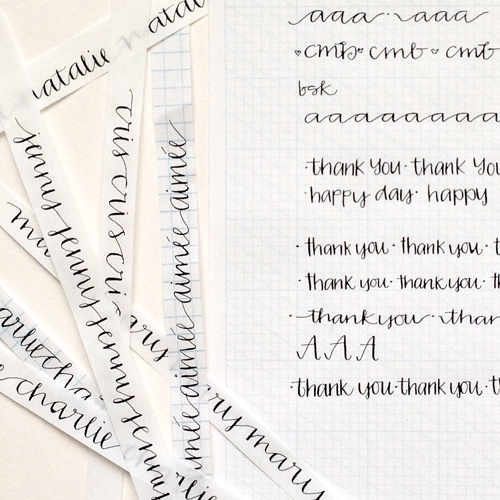 natalie natalie
jenny jenny jenny jenny jenny
cris cris cris
aimée aimée aimée aimée
mary mary
charlie
charlie
aaa · aaa
cmb cmb cmb
bsk
aaaaaaaa
·thank you· thank you
·happy day· happy
·thank you·thank you·
·thank you·thank you·
·thank you·
AAA
·thank you·thank you·